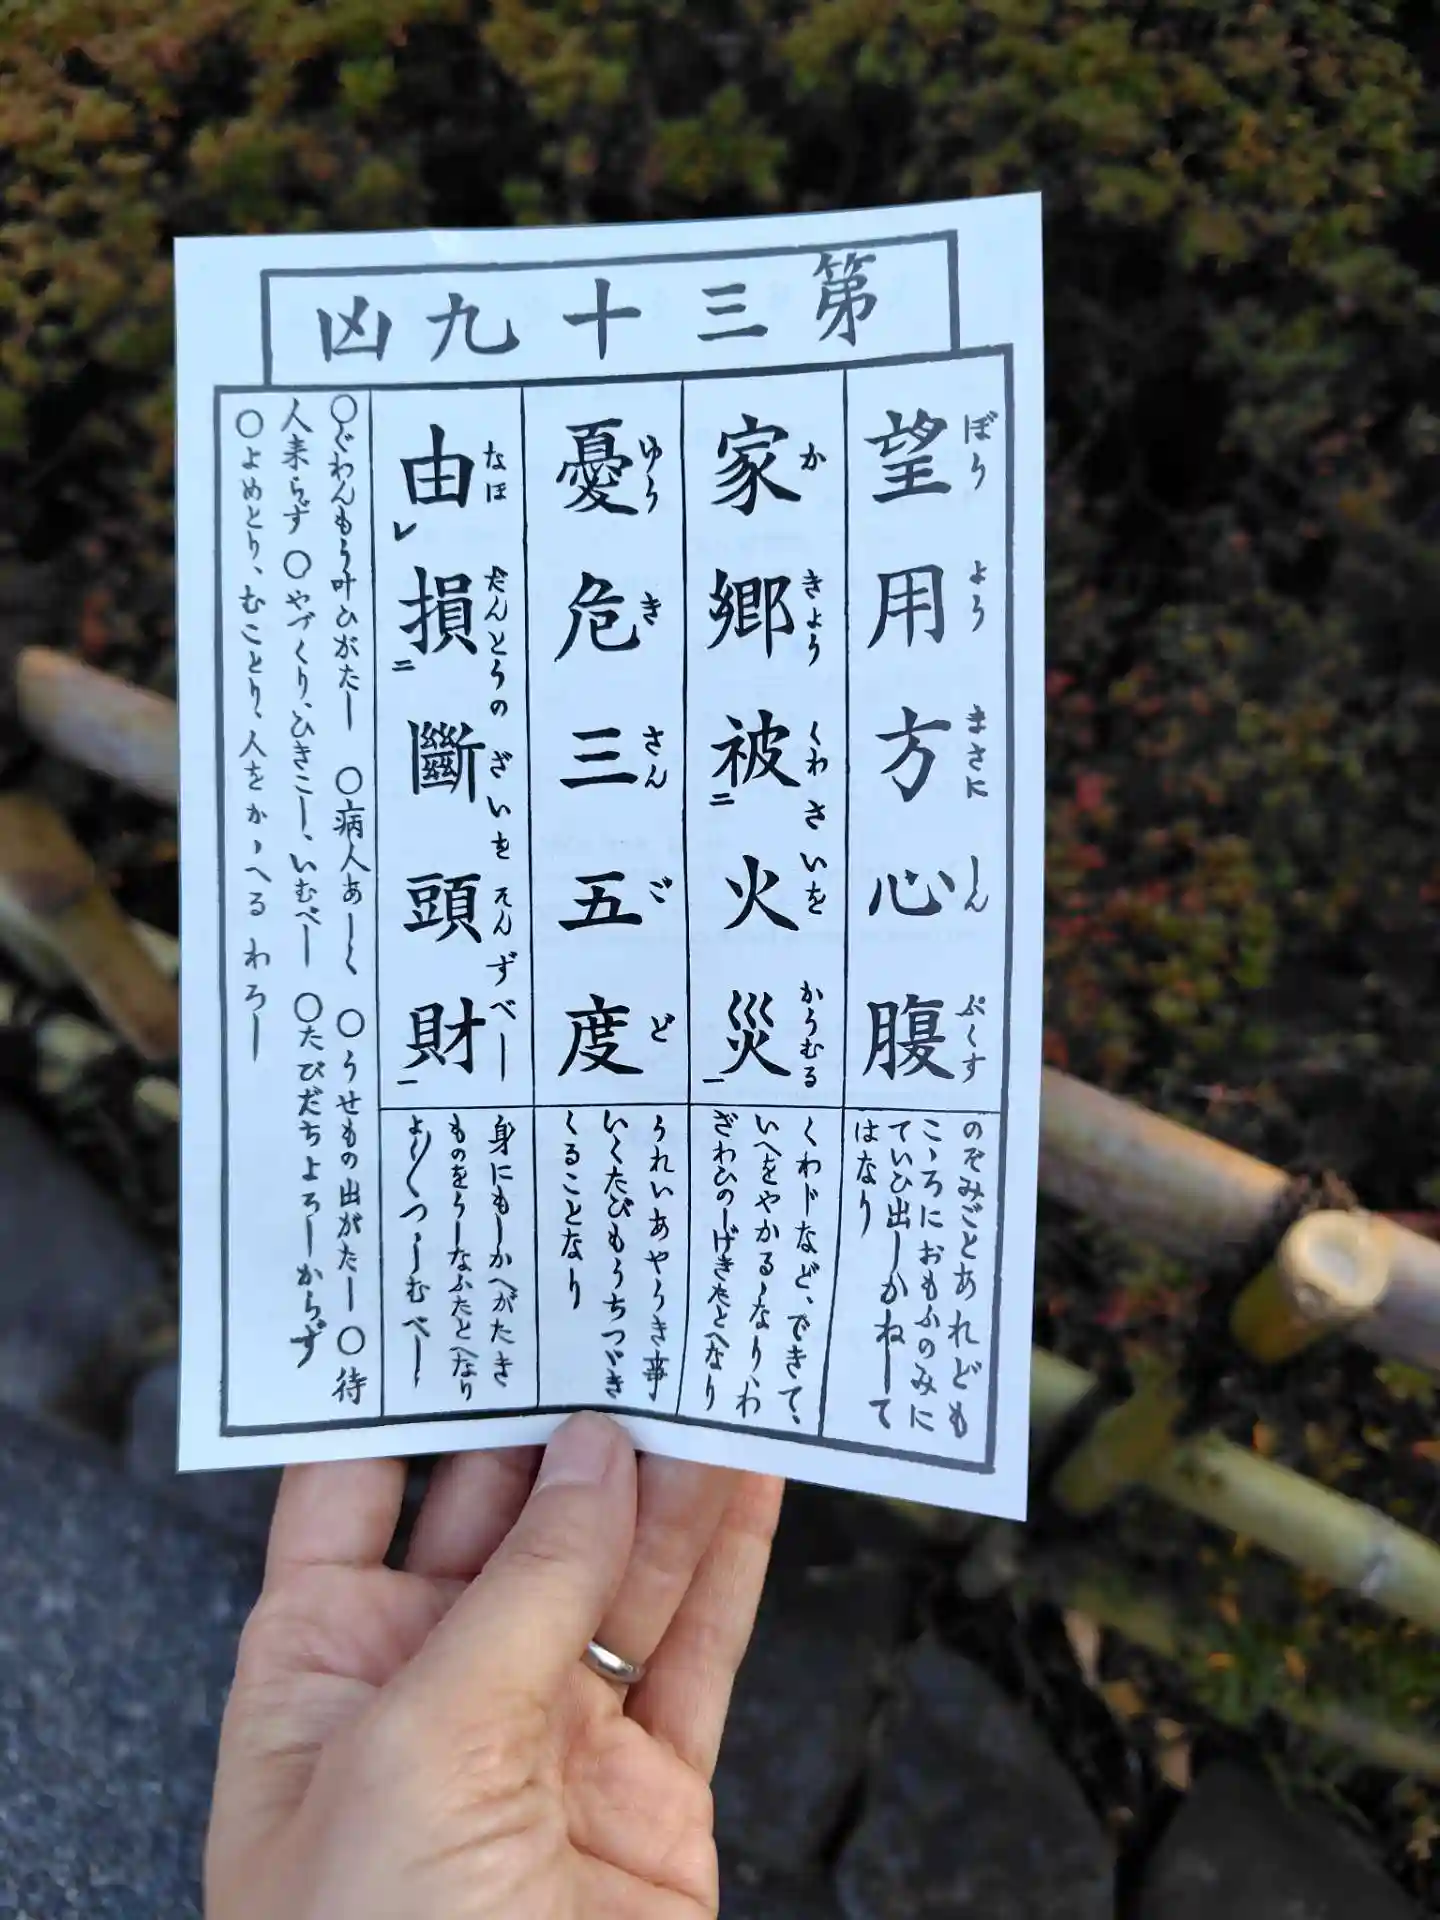 第三十九凶
望用方心腹
ぼう よう まさに しん ぷくす
のぞみごとあれども
こゝろにおもふのみに
ていひ出しかねして
はなり
家郷被二火災一
か きょう くわさいを かうむる
くわじなど、できて、
いへをやかるゝなり、わ
ざわひのしげきたとへなり
憂危三五度
ゆう き さん ご ど
うれいあやうき事
いくたびもうちつゞき
くることなり
由レ損二斷頭財一
なほ だんとうの ざいを そんずべし
身にもしかへがたき
ものをうしなふたとへなり
よく／＼つゝしむべし
○ぐわんもう叶ひがたし ○病人あしく ○うせもの出がたし ○待
人来らず ○やづくり、ひきこし、いむべし ○たびだちよろしからず
○よめとり、むことり、人をかゝへる わろし